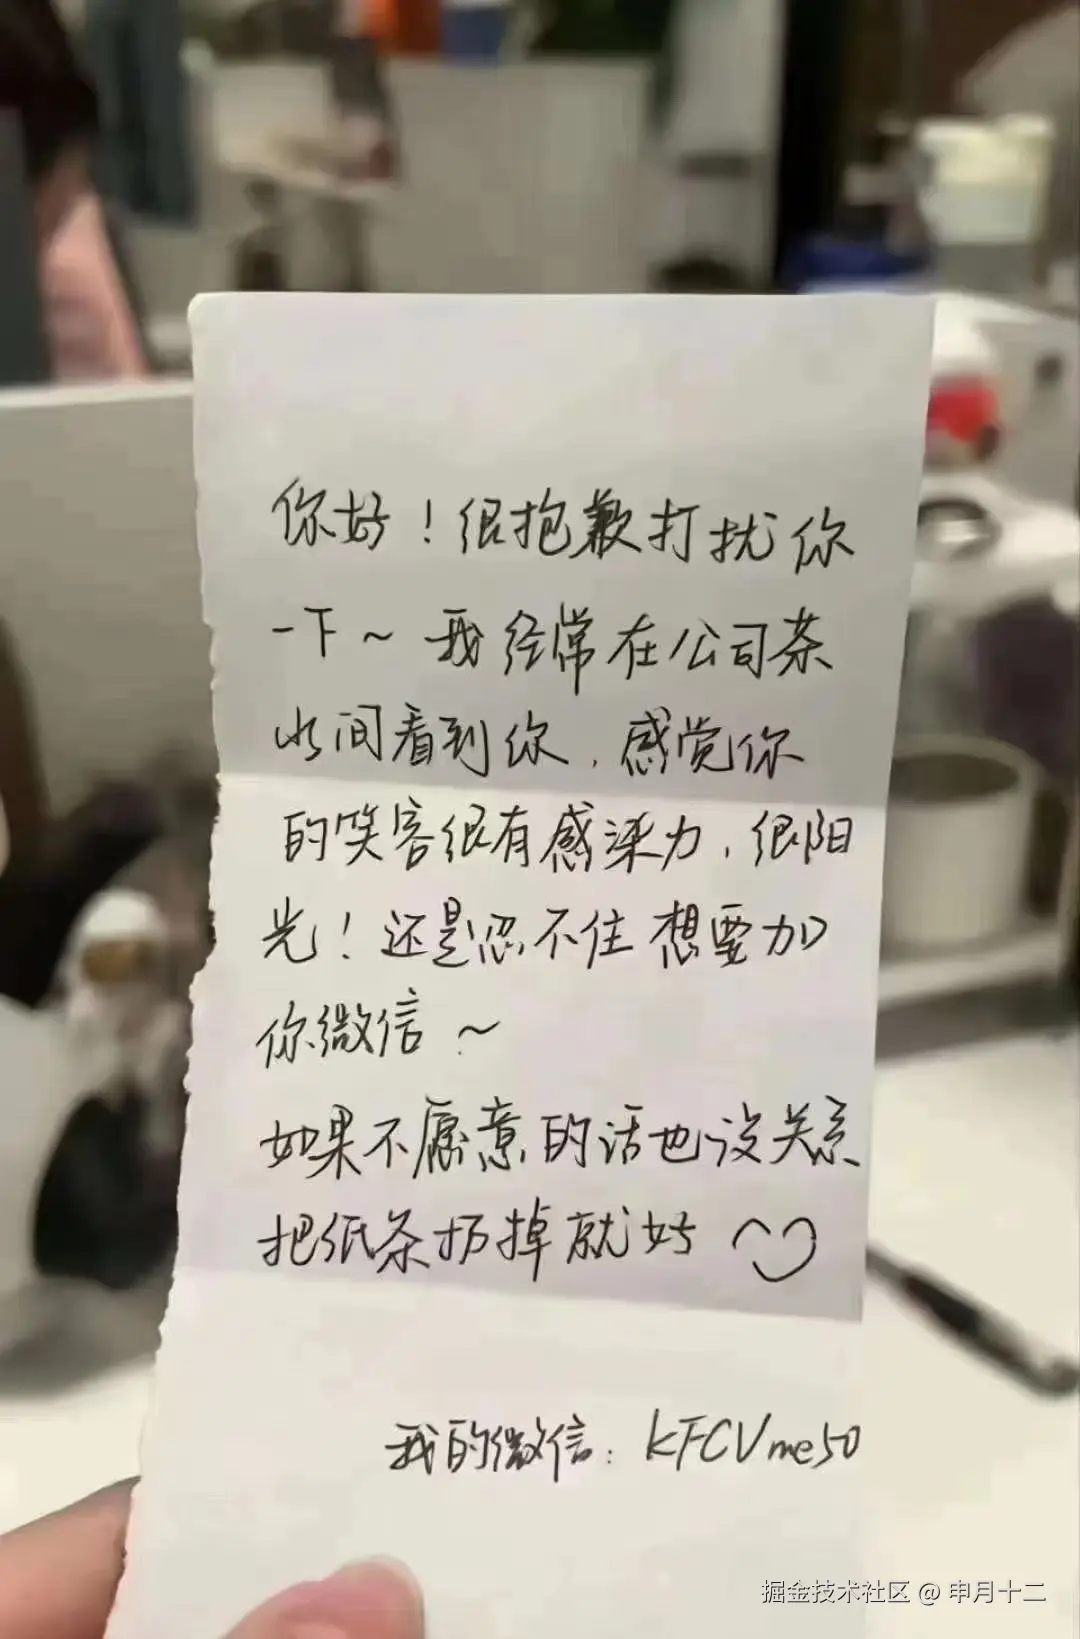 你好！很抱歉打扰你
一下～我经常在公司茶
水间看到你，感觉你
的笑容很有感染力，很阳
光！还是忍不住想要加
你微信～
如果不愿意的话也没关系
把纸条扔掉就好
我的微信：KFCVme50
掘金技术社区 @ 申月十二